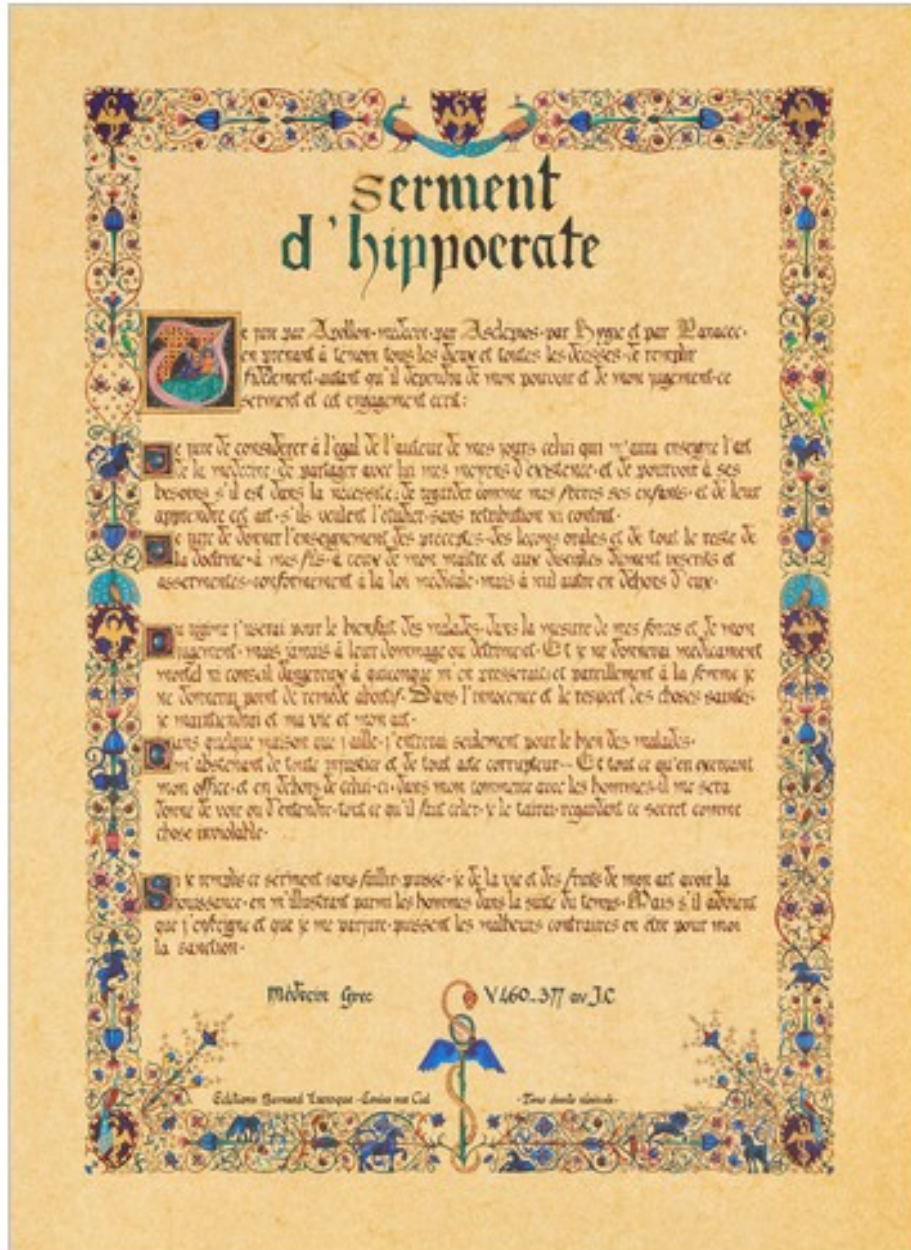 serment
d'hippocrate
Je jure par Apollon-médecin-par Asclepios-par Hygie et par Panacee-
en prenant à temoin tous les dieux et toutes les deesses-de remplir
fidelement-autant qu'il dependra de mon pouvoir et de mon jugement-ce
serment et cet engagement ecrit:
Je jure de considérer à l'egal de l'auteur de mes jours celui qui m'aura enseigne l'art
de la medecine-de partager avec lui mes moyens d'existence-et de pourvoir à ses
besoins s'il est dans la necessite-de regarder comme mes freres ses enfants-et de leur
apprendre cet art-s'ils veulent l'etudier-sans retribution ni contrat-
Je jure de donner l'enseignement des preceptes-des leçons orales et de tout le reste de
la doctrine-à mes fils-à ceux de mon maitre et aux disciples dûment inscrits et
assermentes-conformement à la loi medicale-mais à nul autre en dehors d'eux-
Du regime j'userai pour le bienfait des malades-dans la mesure de mes forces et de mon
jugement-mais jamais à leur dommage ou detriment-Et je ne donnerai medicament
mortel ni conseil dangereux à quiconque m'en presserait et pareillement à la femme je
ne donnerai point de remede abortif-Dans l'innocence et le respect des choses saintes
je maintiendrai et ma vie et mon art-
Dans quelque maison que j'aille-j'entrerai seulement pour le bien des malades-
m'abstenant de toute injustice et de tout acte corrupteur--Et tout ce qu'en exerçant
mon office-et en dehors de celui-ci-dans mon commerce avec les hommes-il me sera
donne de voir ou d'entendre-tout ce qu'il faut celer-y le tairai-regardant ce secret comme
chose inviolable-
Si je remplis ce serment sans faillir-puisse-je de la vie et des fruits de mon art avoir la
jouissance-en m'illustrant parmi les hommes dans la suite du temps-Mais s'il advient
que j'enfreigne et que je me parjure-puissent les malheurs contraires en etre pour moi
la sanction-
Médecin Grec V.460_377 av J.C
Editions Bernard
-Tous droits réservés-